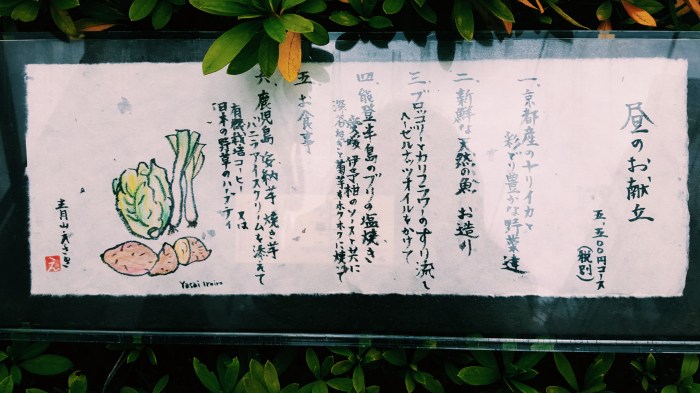 昼のお献立
五、五〇〇円コース
(税別)
一、京都産ヤリイカと
彩り豊かな野菜達
二、新鮮な天然の魚 お造り
三、ブロッコリーとカリフラワーのすり流し
ヘーゼルナッツオイルをかけて
四、能登半島のブリの塩焼き
愛媛 伊予柑のソースと共に
深谷ねぎと菊芋をホクホクに焼いて
五、お食事
六、鹿児島 安納芋 焼き芋
バニラアイスクリームを添えて
有機栽培コーヒー 又は
日本の野草のハーブティ
青山 えさき
Yasai Iroiro